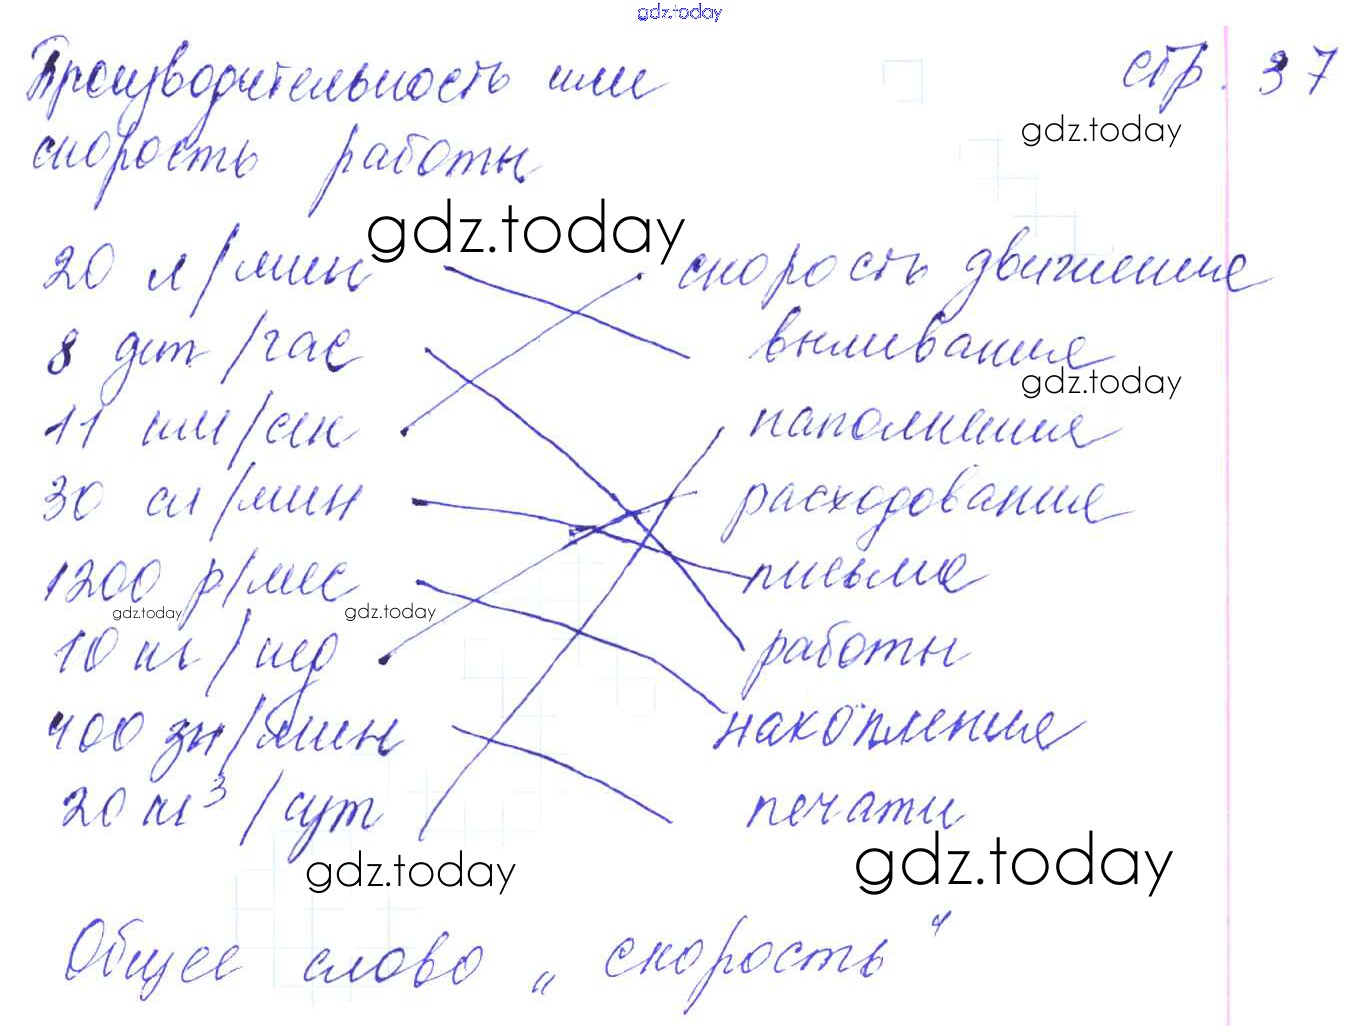 gdz.today
Производительность или стр. 37
скорость работы
gdz.today
gdz.today
20 л/мин скорость движение
8 дет/час выливания
gdz.today
11 км/сек наполнения
30 сл/мин расходования
1200 р/мес письма
gdz.today gdz.today
10 кг/нед работы
400 зн/мин накопления
20 м³/сут печати
gdz.today gdz.today
Общее слово „скорость"